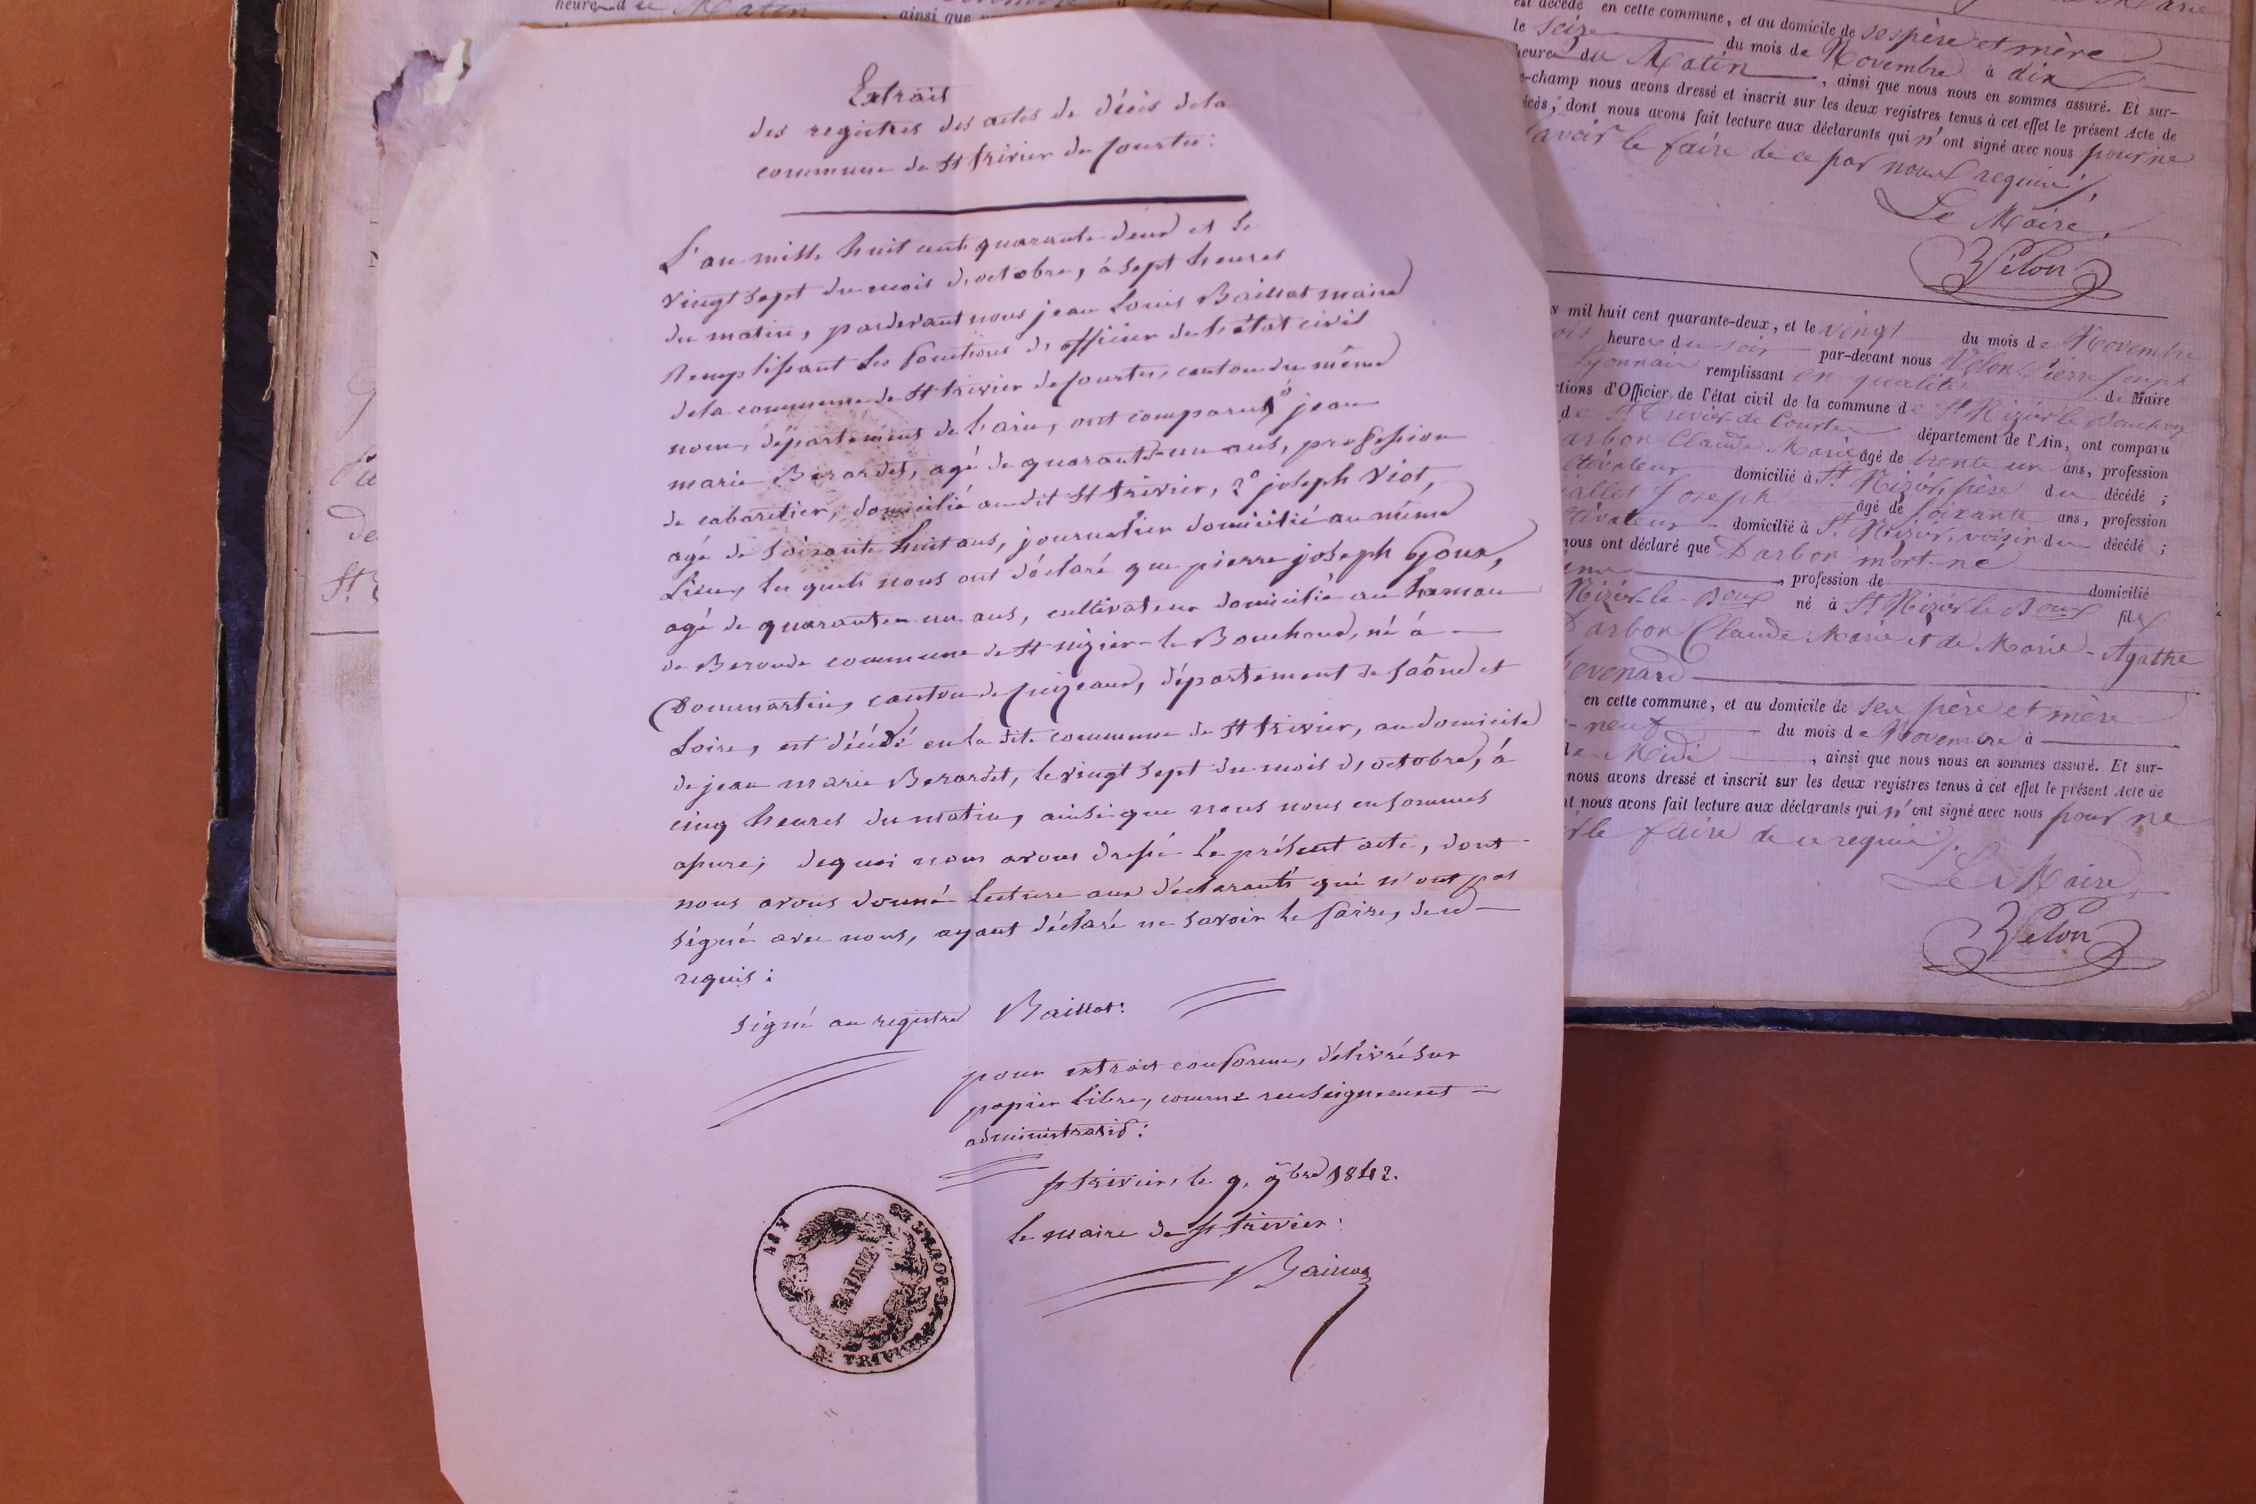 Extrait
des registres des actes de décès de la
commune de St trivier de courtes :
L'an mille huit cent quarante-deux et le
vingt sept du mois d'octobre, à sept heures
du matin, pardevant nous jean Louis Baillat maire
Remplissant les fonctions d'officier de l'état civil
de la commune de St trivier de courtes, canton du même
nom, département de l'ain, ont comparu 1° jean
marie Berardet, agé de quarante-un ans, profession
de cabaretier, domicilié audit St trivier, 2° joseph Viot,
agé de soixante huit ans, journalier domicilié au même
Lieu, les quels nous ont déclaré que pierre joseph Goux,
agé de quarante un ans, cultivateur domicilié au hamau
de Beroude commune de St nizier-le-Bouchoud, né à
Dommartin, canton de Cuizeaux, département de Saône et
Loire, est décédé en la dite commune de St trivier, au domicile
de jean marie Berardet, le vingt sept du mois d'octobre, à
cinq heures du matin, ainsi que nous nous en sommes
assuré; de quoi nous avons dressé le présent acte, dont
nous avons donné lecture aux déclarants qui n'ont pas
signé avec nous, ayant déclaré ne savoir le faire, de ce
requis :
signé au registre Baillat :
pour extrait conforme, délivré sur
papier libre, comme renseignement
administratif :
St trivier, le 9. 9bre 1842.
le maire de St trivier :
Baillat
MAIRIE
ST TRIVIER-DE-COURTES
AIN
heures du Matin, ainsi que
est décédé en cette commune, et au domicile de ses père et mère
le seize du mois de Novembre à dix
heures du Matin, ainsi que nous nous en sommes assuré. Et sur-
le-champ nous avons dressé et inscrit sur les deux registres tenus à cet effet le présent Acte de
décès, dont nous avons fait lecture aux déclarants qui n'ont signé avec nous pour ne
savoir le faire de ce par nous requis.
Le Maire,
Velon
mil huit cent quarante-deux, et le vingt du mois de Novembre
heures du soir par-devant nous Velon Pierre Joseph
Lyonnais remplissant en qualité de Maire
ctions d'Officier de l'état civil de la commune de St Nizier le Bouchoux
de St Trivier de Courtes département de l'Ain, ont comparu
arbon Claude Marie âgé de trente un ans, profession
domicilié à St Nizier, père du décédé ;
Joseph âgé de soixante ans, profession
domicilié à St Nizier, voisin du décédé ;
nous ont déclaré que Darbon mort-né
, profession de domicilié
Nizier-le-Boux né à St Nizier le Boux fils
Darbon Claude Marie et de Marie-Agathe
evenard
en cette commune, et au domicile de ses père et mère
-neuf du mois de Novembre à
de Midi, ainsi que nous nous en sommes assuré. Et sur-
nous avons dressé et inscrit sur les deux registres tenus à cet effet le présent Acte de
nt nous avons fait lecture aux déclarants qui n'ont signé avec nous pour ne
le faire de ce requis.
Le Maire
Velon